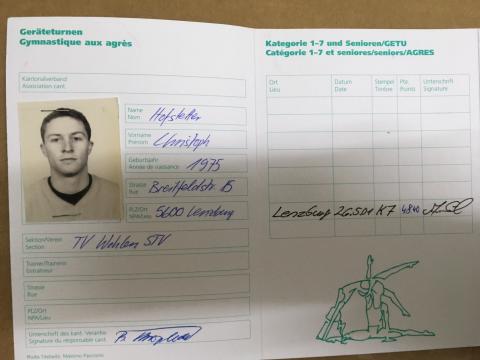 Geräteturnen
Gymnastique aux agrès
Kantonalverband
Association cant.
Name
Nom
Hofstetter
Vorname
Prénom
Christoph
Geburtsjahr
Année de naissance
1975
Strasse
Rue
Breitfeldstr. 15
PLZ/Ort
NPA/Lieu
5600 Lenzburg
Sektion/Verein
Section
TV Wohlen STV
Trainer/Trainerin
Entraîneur
Strasse
Rue
PLZ/Ort
NPA/Lieu
Unterschrift des kant. Verantw.
Signature du responsable cant.
Kategorie 1-7 und Senioren/GETU
Catégorie 1-7 et seniores/seniors/AGRES
Ort
Lieu
Datum
Date
Stempel
Timbre
Pte.
Points
Unterschrift
Signature
Lenzburg K7